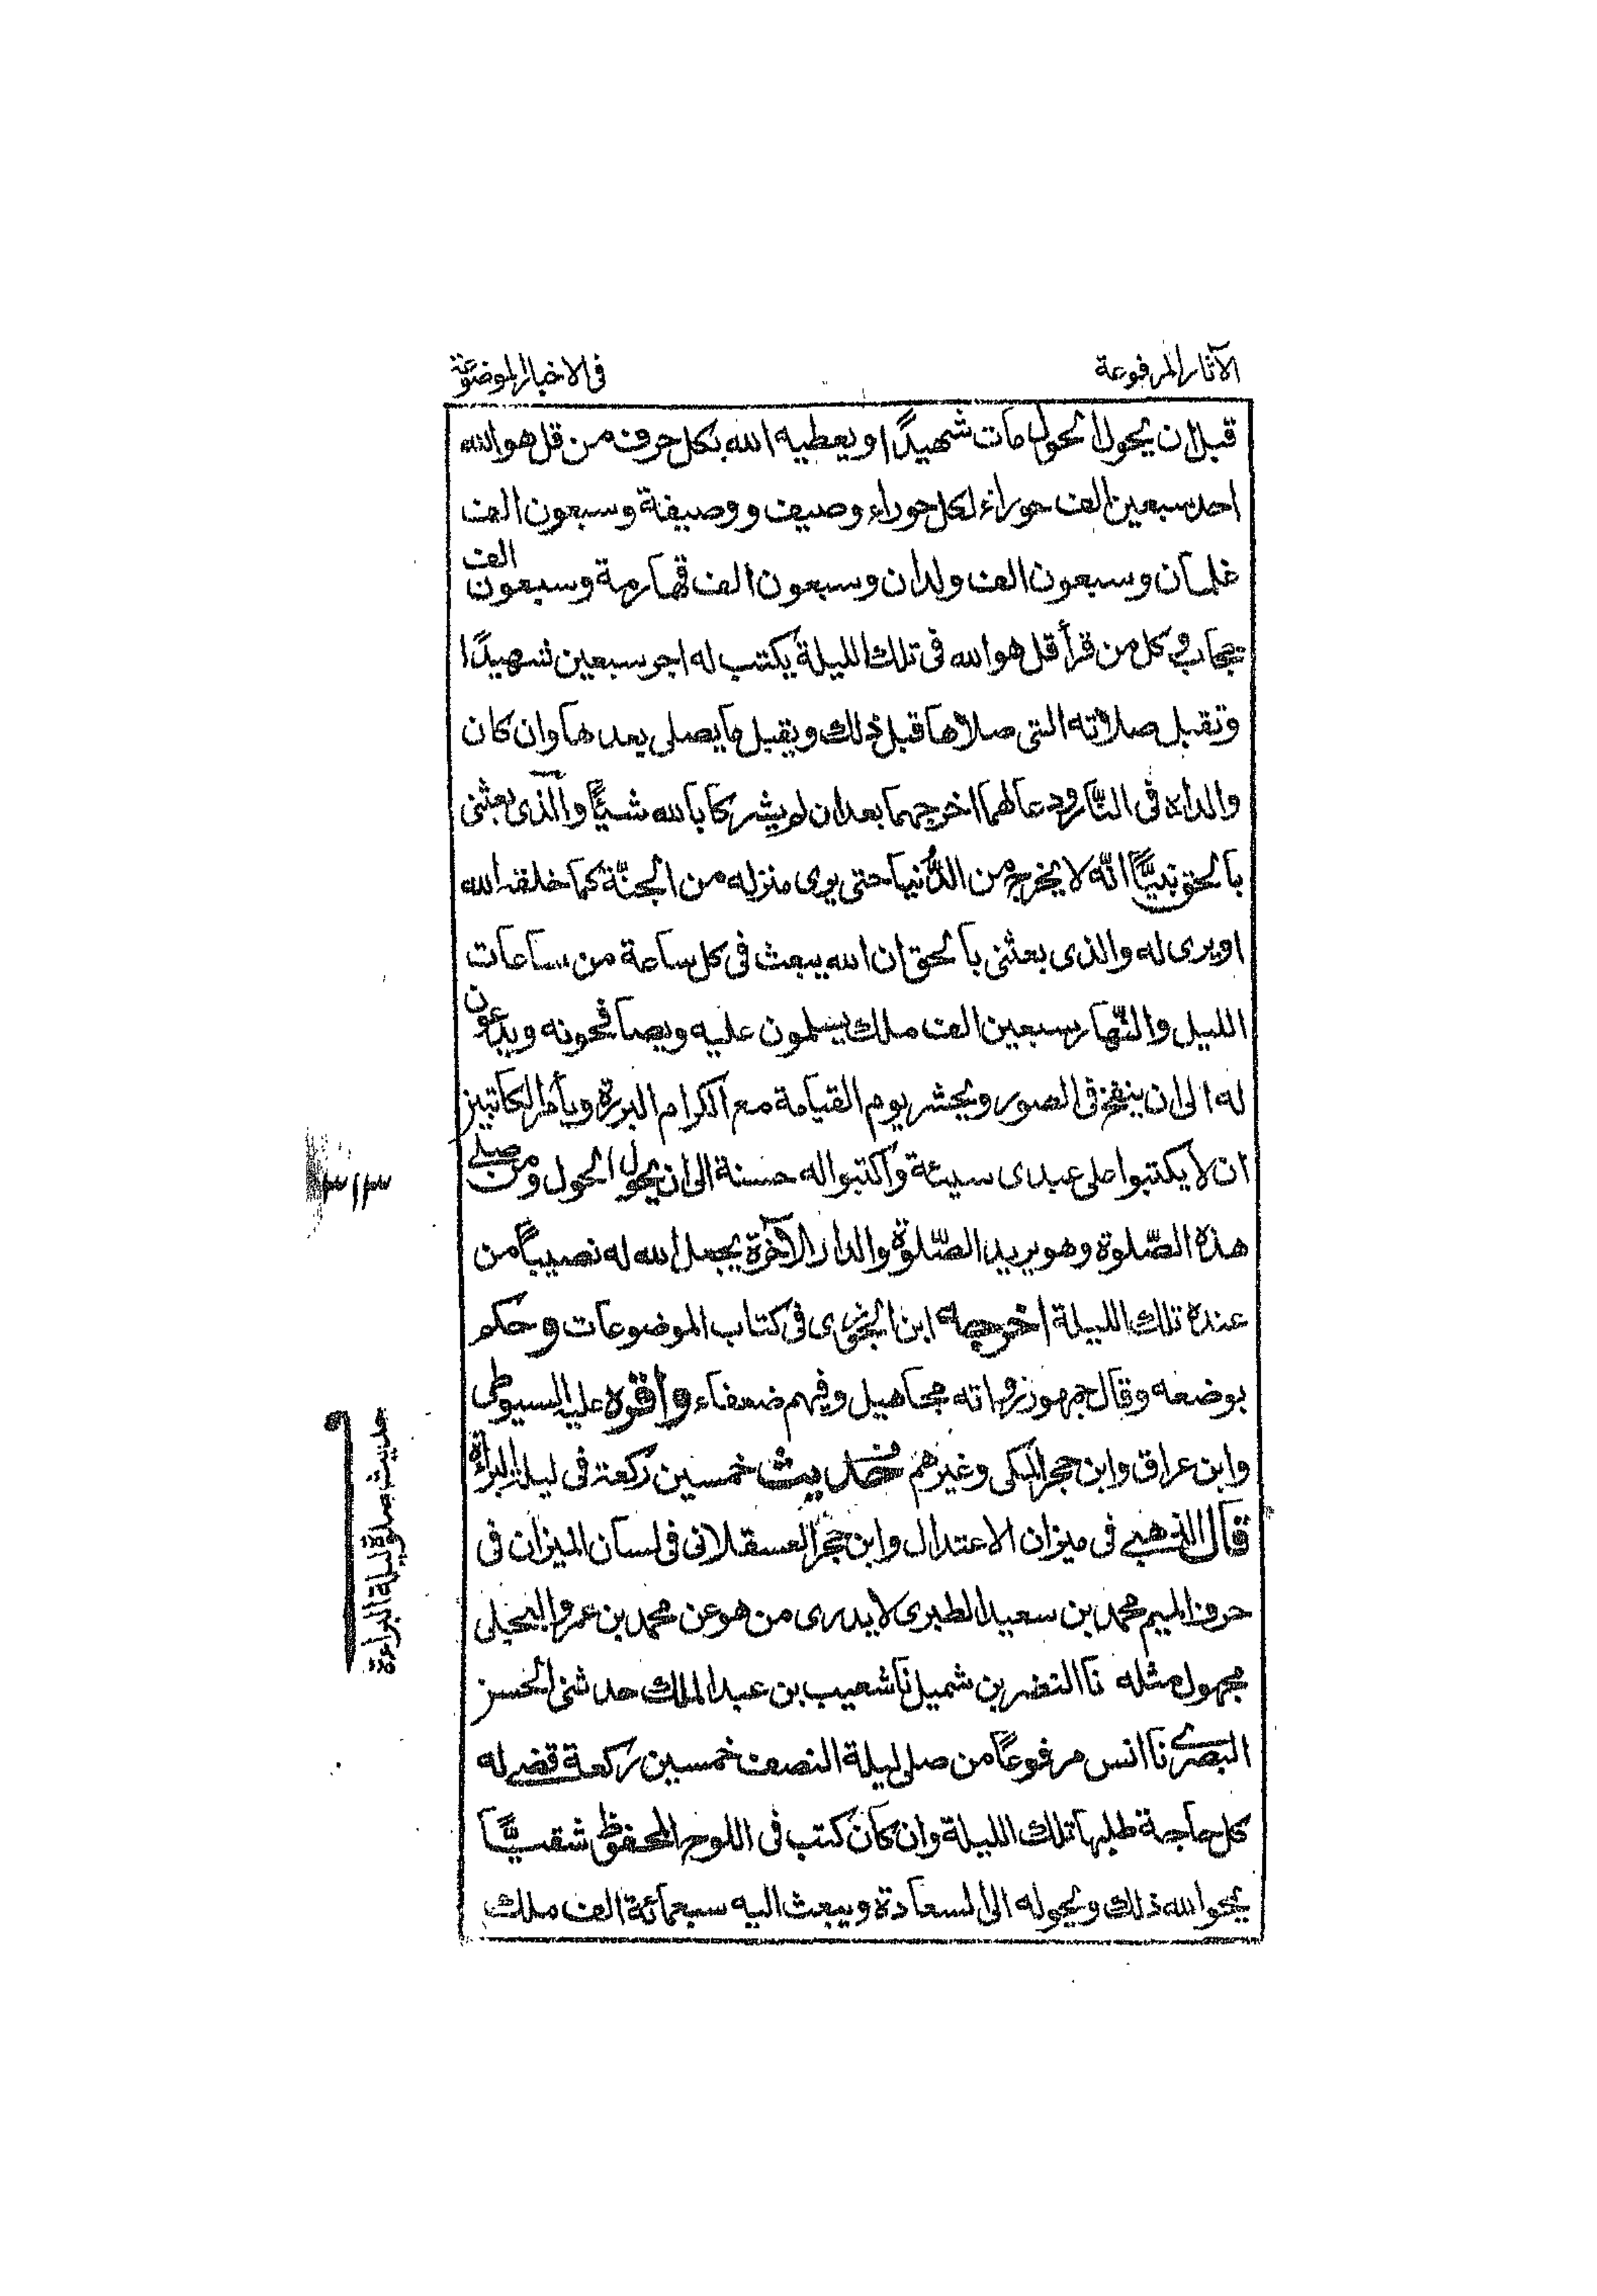 الآثار المرفوعة
فى الاخبار الموضوعة
قبل ان يحول الحول مات شهيدًا ويعطيه الله بكل حرف من قل هو الله
احد سبعين الف حوراء لكل حوراء وصيف ووصيفة وسبعون الف
غلمان وسبعون الف ولدان وسبعون الف قهارمة وسبعون الف
حجاب وكل من قرأ قل هو الله فى تلك الليلة يكتب له اجر سبعين شهيدًا
وتقبل صلاته التى صلاها قبل ذلك ويقبل ما يصلى بعدها وان كان
والداه فى النّار ودعا لهما اخرجهما بعد ان لم يشركا بالله شيئًا والّذى بعثنى
بالحق نبيًّا انّه لا يخرج من الدُّنيا حتى يرى منزله من الجنّة كما خلقه الله
او يرى له والذى بعثنى بالحق ان الله يبعث فى كل ساعة من ساعات
الليل والنّهار سبعين الف ملك يسلمون عليه ويصافحونه ويدعون
له الى ان ينفخ فى الصور ويحشر يوم القيامة مع الكرام البررة ويأمر الكاتبين
ان لا يكتبوا على عبدى سيئة واكتبوا له حسنة الى ان يحول الحول ومن صلى
هذه الصّلوة وهو يريد الصّلوة والدار الآخرة يجعل الله له نصيبًا من
عنده تلك الليلة اخرجه ابن الجوزى فى كتاب الموضوعات وحكم
بوضعه وقال جمهور رواته مجاهيل وفيهم ضعفاء واقره عليه السيوطى
وابن عراق وابن حجر المكى وغيرهم حديث خمسين ركعة فى ليلة البراءة
قال الذهبى فى ميزان الاعتدال وابن حجر العسقلانى فى لسان الميزان فى
حرف الميم محمد بن سعيد الطبرى لا يدرى من هو عن محمد بن عمرو البجلى
مجهول مثله نا النضر بن شميل نا شعيب بن عبد الملك حدثنى الحسن
البصرى نا انس مرفوعًا من صلى ليلة النصف خمسين ركعة قضى له
كل حاجة طلبها تلك الليلة وان كان كتب فى اللوح المحفوظ شقيًّا
يمحو الله ذلك ويحوله الى السعادة ويبعث اليه سبعمائة الف ملك
حديث صلوة ليلة البراءة